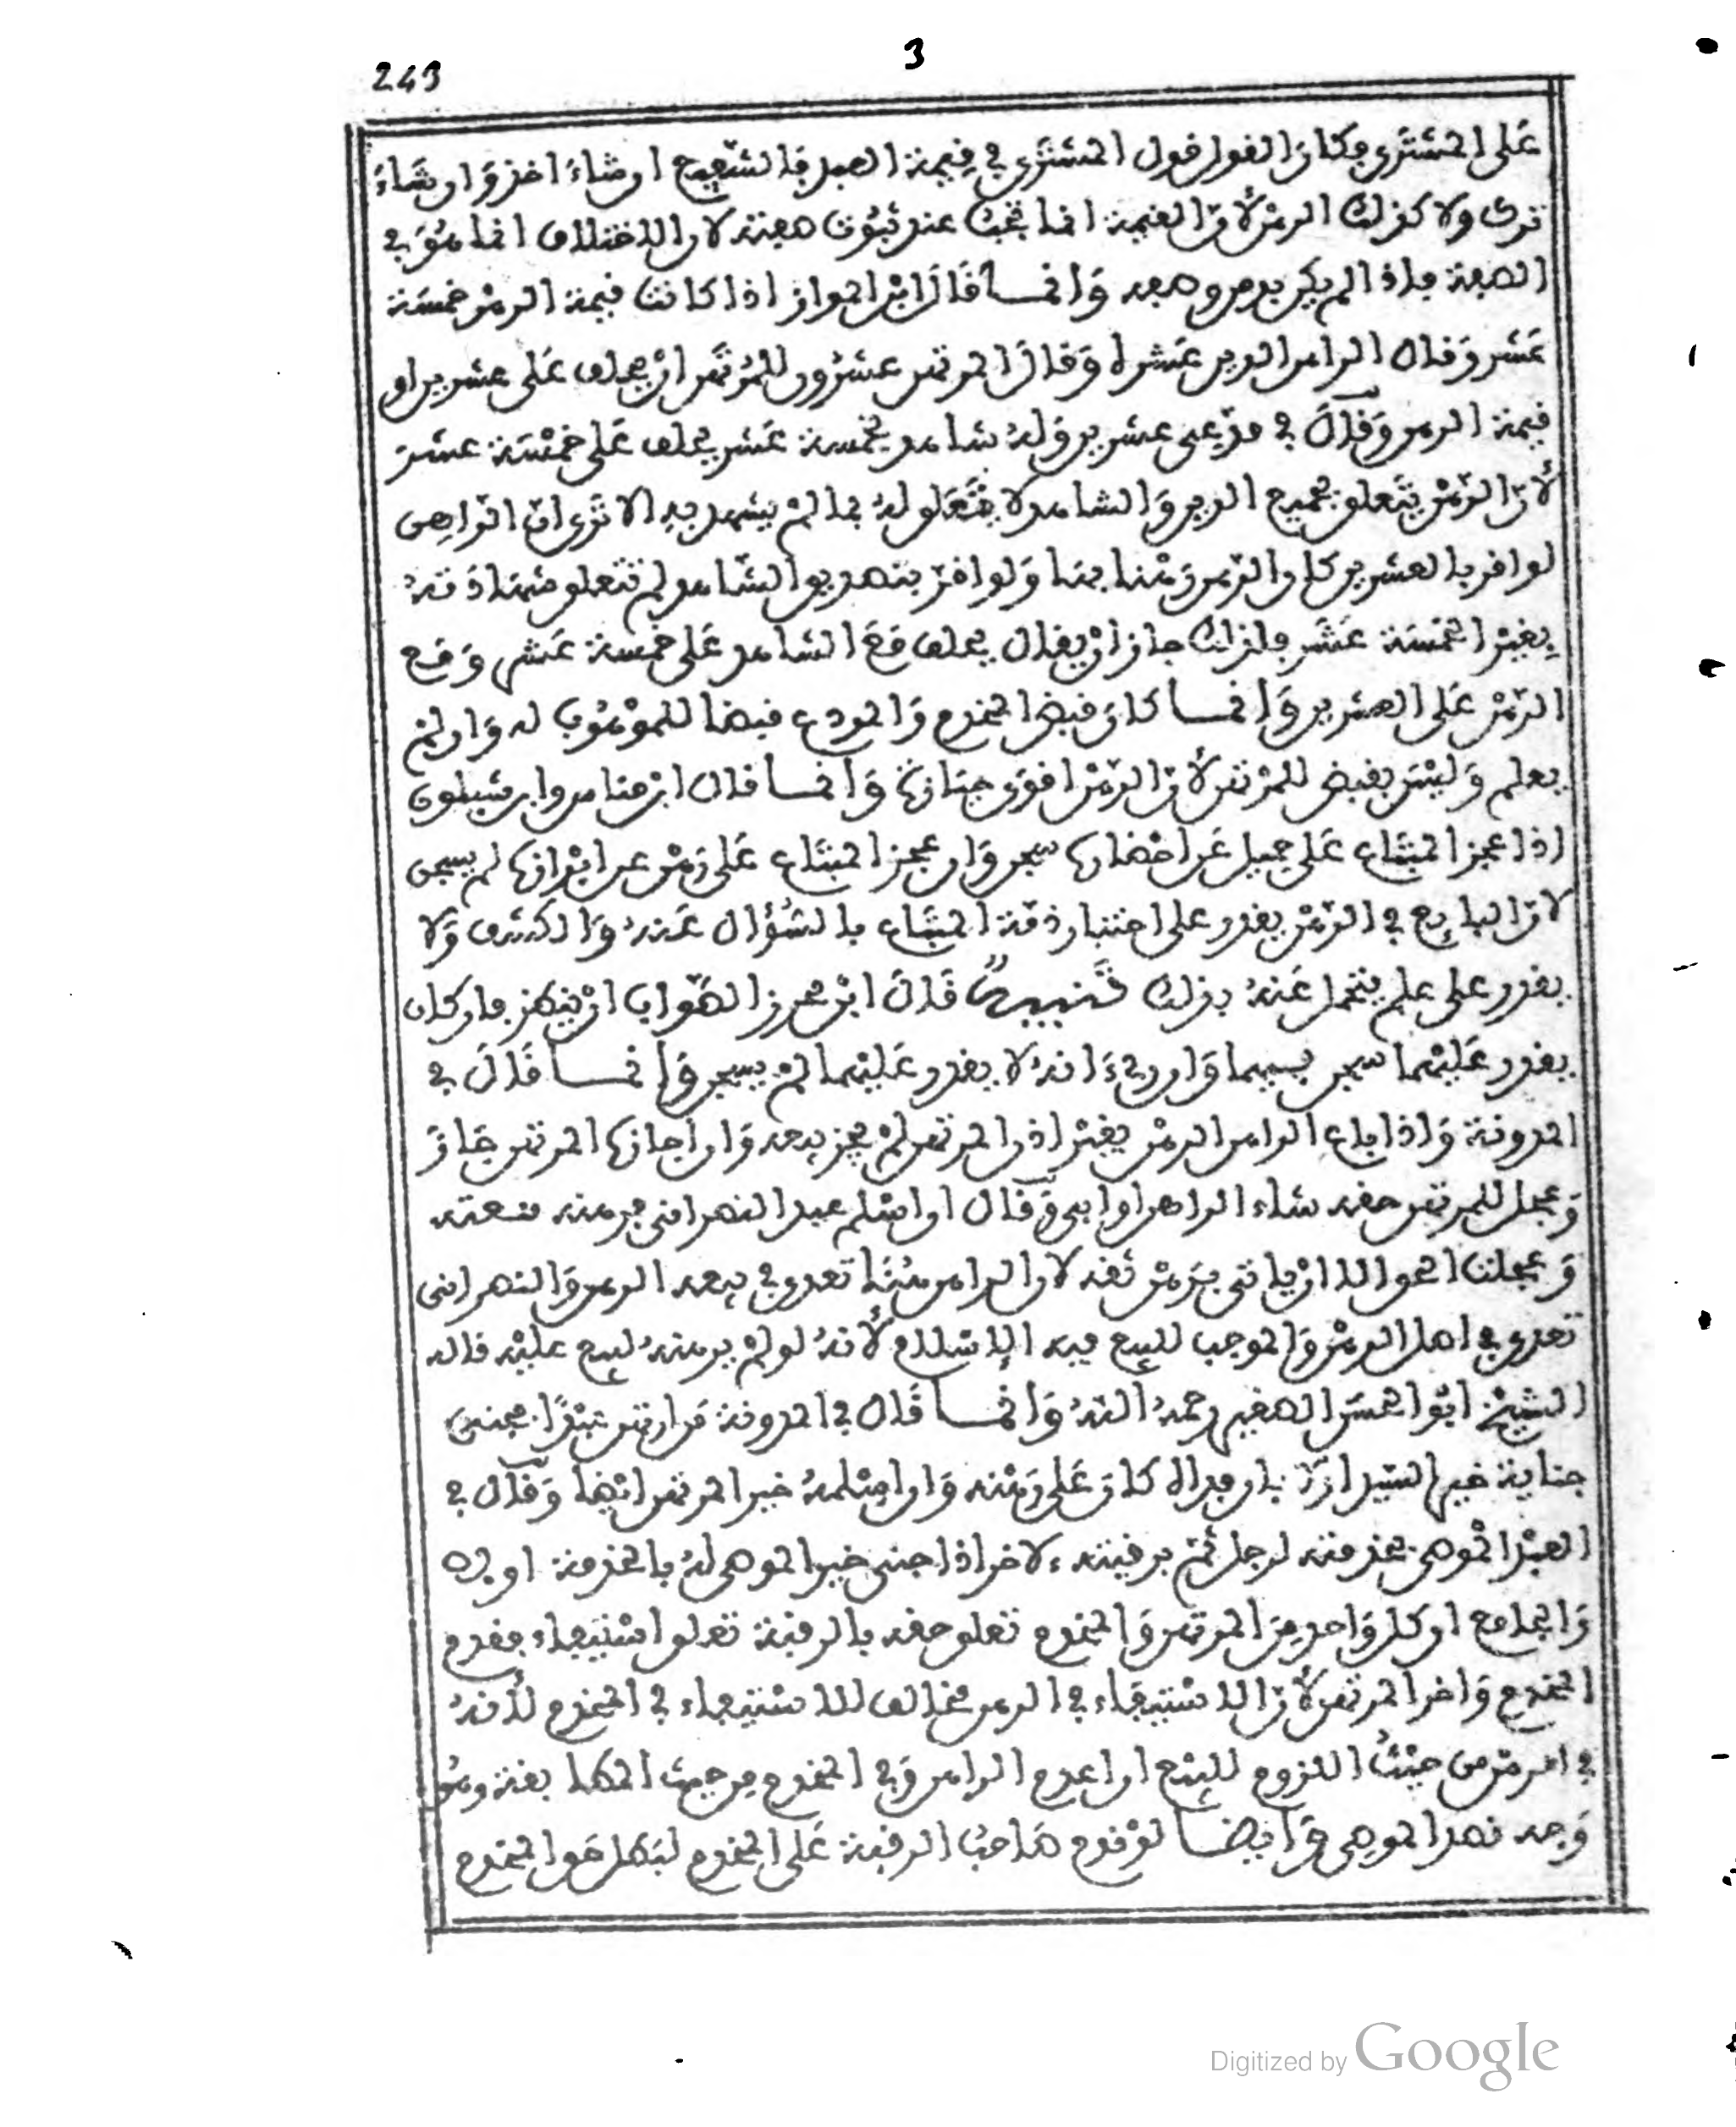 3
243
عَلى المشتَرى فكان القول قول المشتَرى في قيمة الصبل فالشفيع ان شاءَ اخذ وَان شَاءَ
ترك ولا كذلك الرهن لأنّ القيمة انما تجبُ عند ثبُوت صفته لان الاختلاف انما هُوَ في
الصفة فاذا لم يكن بد من وصفه وَانمــا قَالَ ابْن المواز اذا كانت قيمة الرهن خمسَة
عَشر وَقال الراهن الدين عَشرة وَقالَ المرتهن عشرُون للمُرتَهن انْ يحلف عَلى عشرين او
قيمة الرهن وَقالَ في مدّعى عشرين وَلهُ شاهد بخمسة عَشر يحلف عَلى خمْسَة عشَر
لأنّ الرّهْن يتَعلق بجميع الدين وَالشاهد لا يَتَعَلق لهُ بما لمْ يشهد به الا تَرى انّ الرّاهن
لو اقر بالعشرين كان الرّهن رهْنا بهَا وَلو اقرّ بتصديق الشّاهد لم تتعلق منهَا ذمّتهُ
بِغيْر الخمسَة عَشَر فلذلك جاز انْ يقال يحلف مَعَ الشاهد عَلى خمْسة عَشر وَمع
الرّهْن عَلى العشرين وَانمــا كانَ قبض المخدم وَالمودع قبضا للموْهُوب له وَان لمْ
يعلم وَليْسَ بقبض للمرْتهن لأنّ الرّهْن اقوَى حيَازَة وَانمــا قال ابْن هشام وابن شبلون
اذا عجز المبْتَاع عَلى حميل عَن احْضارها سجن وَان عجز المبتَاع عَلى رَهْن عن ابْرَازها لم يسجن
لانّ البايع في الرّهْن يقدر على اختبار ذمّة المبتَاع بالسُؤال عَنهُ وَالكشف وَلا
يقدر على علم يتحمل عَنهُ بذلك تَنبيهٌ قَالَ ابْن محرز الصّواب انْ ينظر فان كان
يقدر عَليْهما سجن بسببهما وَان رىءَ انهُ لا يقدر عَليْهما لمْ يسجن وَانمــا قَالَ في
المدونة وَاذا باع الراهن الرهن بغيْر اذن المرتهن لمْ يجز بيعه وَان اجازها المرتهن جَازَ
وَعجل للمرتهن حقه شاء الراهن او ابى وَقال ان اسْلم عبد النصرانى فرهنه بعته
وَعجلت الحق الا انْ ياتى برَهْن ثقة لان الراهن هُنَا تعدى في بيعه الرهن وَالنصرانى
تعدى في اصل الرهْن وَالموجب للبيع فيه الاسْلام لأنهُ لو لمْ يرهنهُ لبيع عليْه قاله
الشيْخ ابُو الحسَن الصغير رحمهُ اللهُ وَانمــا قَال في المدونة مَن ارتهن عبْدًا فجنى
جناية خير السّيد اوّلا فان فداه كانَ عَلى رَهْنه وَان اسْلمهُ خير المرتهن ايْضا وَقال في
العبْد المُوصى بخدمته لرجل ثُمّ برقبته ءلاخر اذا جنى خير الموصى لهُ بالخدمة اولا
وَالجامع ان كل وَاحد مِنَ المرتهن وَالمخدم تعلق حقه بالرقبة تعلق اسْتيفاء فقدم
المخدم وَاخر المرتهن لأنّ الاسْتيفاء في الرهن مخالف للاسْتيفاء في المخدم لأنهُ
في الرهْن من حيْثُ اللزوم للبيْع ان اعدم الراهن وَفي المخدم من حيث المطابقة وهُو
وَجه قصد الموصى وَايضــا لوْ قدم صَاحبُ الرقبة عَلى المخدم لبَطل حَق المخدم